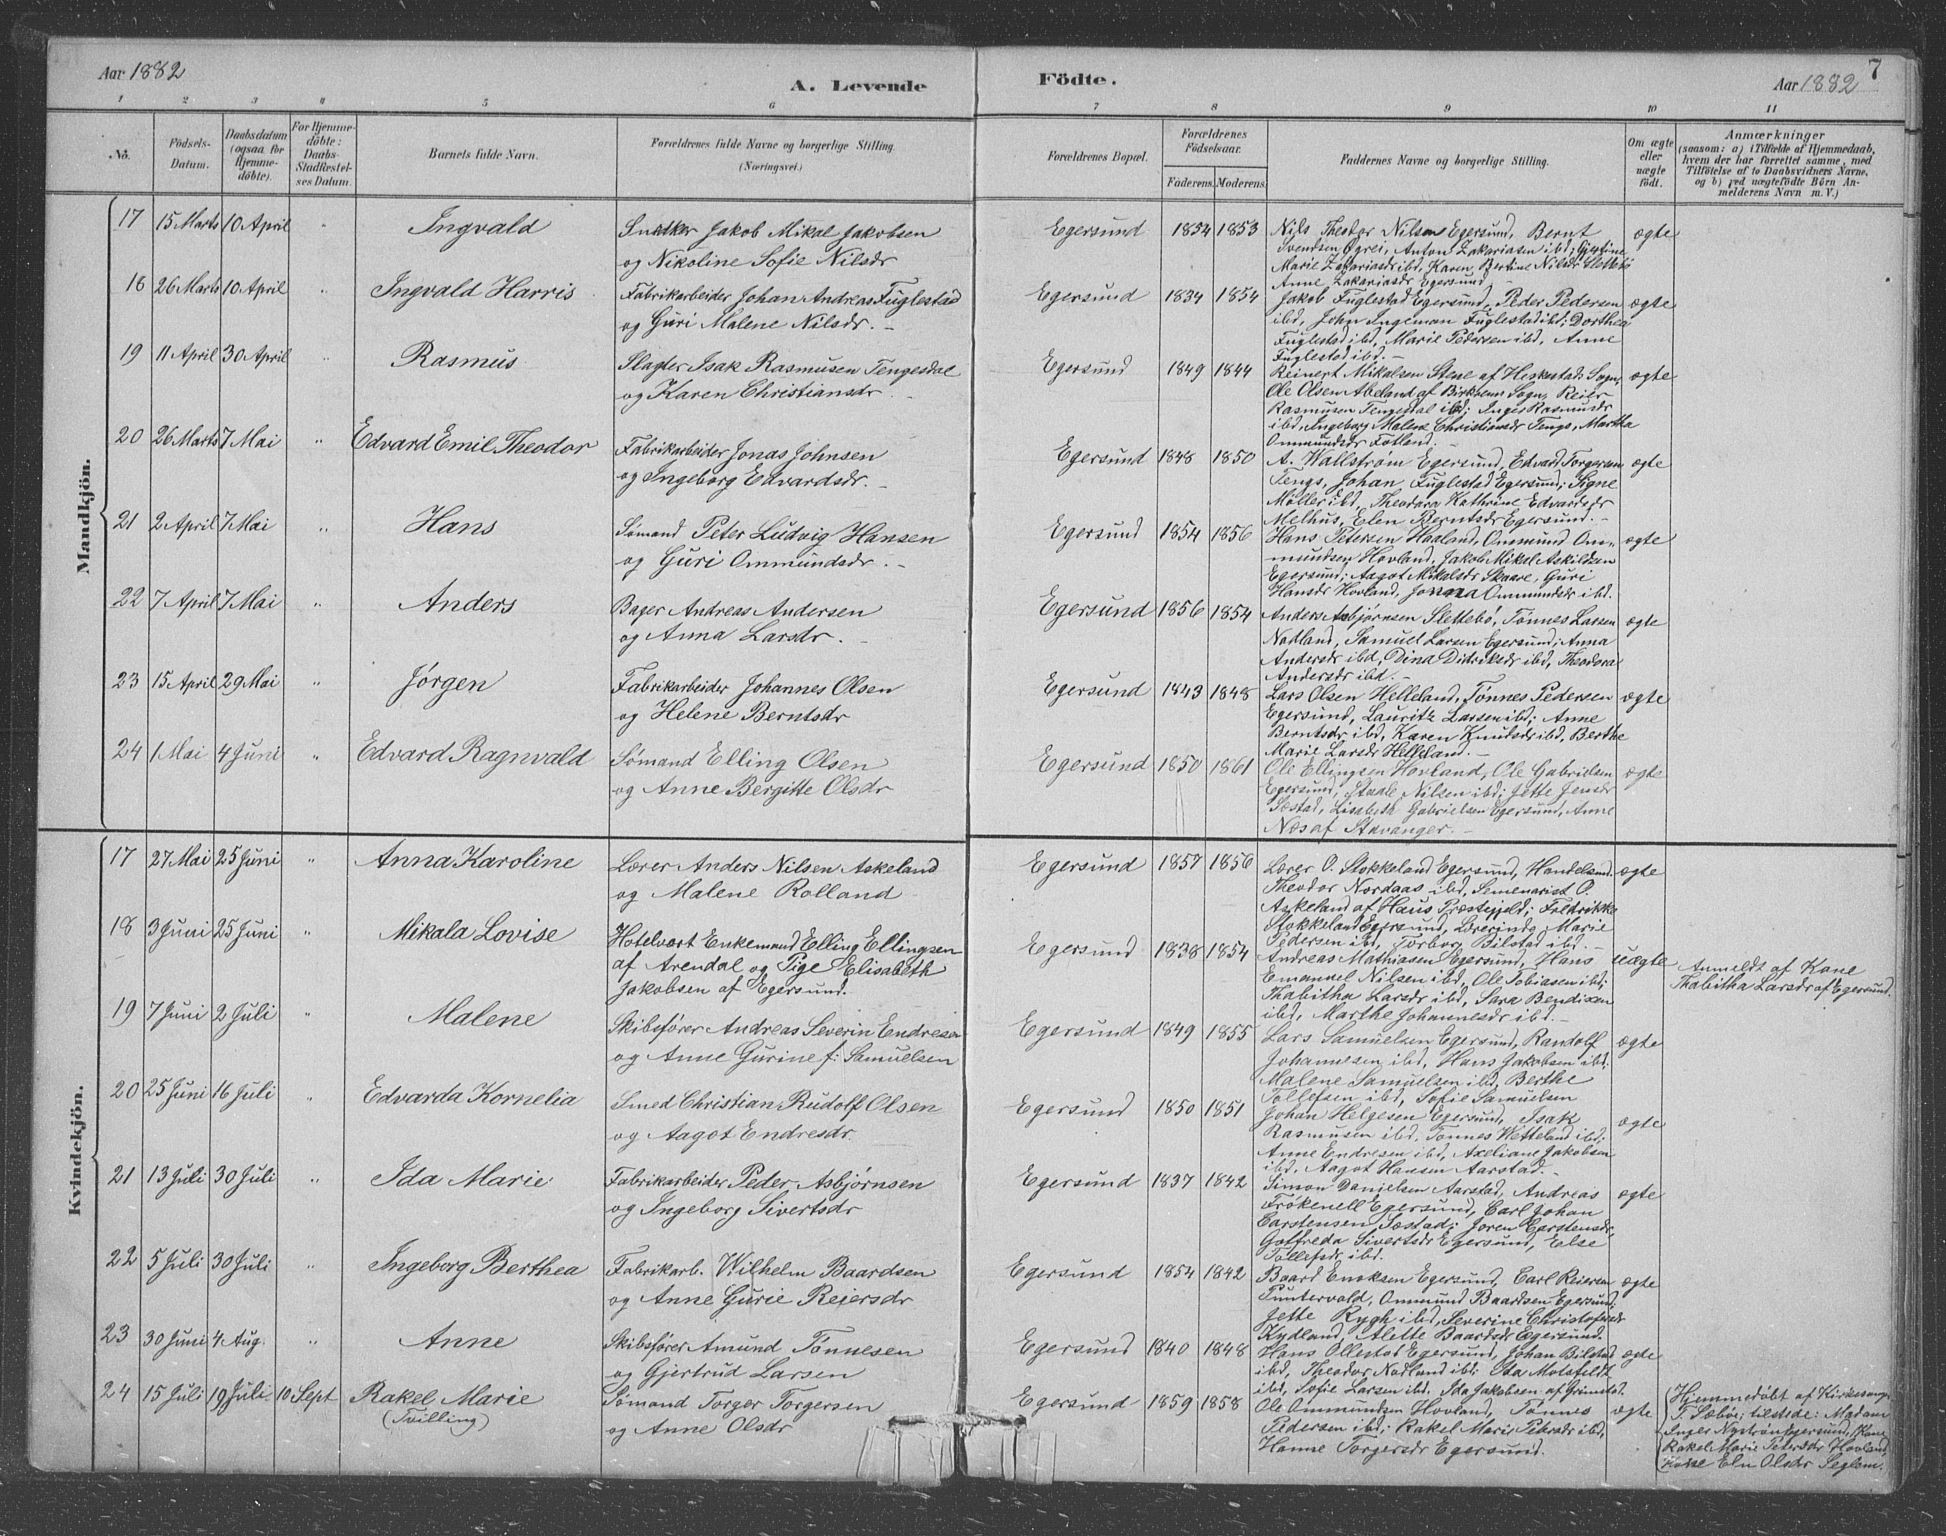 Aar 1882
A. Levende
Födte.
Aar 1882
7
1 2 3 4 5 6 7 8 9 10 11
No.
Födsels-
Datum.
Daabsdatum
(ogsaa for
Hjemme-
döbte).
For Hjemme-
döbte:
Daabs-
Stadfæstel-
ses Datum.
Barnets fulde Navn.
Forældrenes fulde Navne og borgerlige Stilling.
(Næringsvei.)
Forældrenes Bopæl.
Forældrenes
Födselsaar.
Faderens. Moderens.
Faddernes Navne og borgerlige Stilling.
Om ægte
eller
uægte
födt.
Anmærkninger
(saasom: a) i Tilfælde af Hjemmedaab,
hvem der har forrettet samme, med
Tilföielse af to Daabsvidners Navne,
og b) ved uægtefödte Börn An-
melderens Navn m. V.)
Mandkjön.
17 15 Marts 10 April " Ingvald
Snedker Jakob Mikal Jakobsen
og Nikoline Sofie Nilsdr
Egersund 1854 1853
Nils Theodor Nilsen Egersund, Bernt
Svendsen Øgrei, Anton Zakariasen ibd; Gjertine
Marie Zakariasdr ibd, Karen Bertine Nilsdr Slettebö
Anne Zakariasdr Egersund
ægte
18 26 Marts 10 April " Ingvald Harris
Fabrikarbeider Johan Andreas Fuglestad
og Guri Malene Nilsdr. -
Egersund 1834 1854
Jakob Fuglestad Egersund, Peder Pedersen
ibd, John Ingeman Fuglestad ibd; Dorthea
Fuglestad ibd, Marie Pedersen ibd, Anne
Fuglestad ibd. -
ægte
19 11 April 30 April " Rasmus
Slagter Isak Rasmusen Tengesdal
og Karen Christiansdr. -
Egersund 1849 1844
Reinert Mikalsen Stene af Heskestad Sogn,
Ole Olsen Abeland af Birkrem Sogn, Reier
Rasmusen Tengesdal ibd; Inger Rasmusdr
ibd, Ingeborg Malene Christiansdr Tengs, Martha
Ommundsdr Fotland. -
ægte
20 26 Marts 7 Mai " Edvard Emil Theodor
Fabrikarbeider Jonas Johnsen
og Ingeborg Edvardsdr. -
Egersund 1848 1850
A. Wallstrøm Egersund, Edvard Torgersen
Tengs, Johan Fuglestad Egersund; Signe
Møller ibd, Theodora Kathrine Edvardsdr
Melhus, Elen Berntsdr Egersund. -
ægte
21 2 April 7 Mai " Hans
Sømand Peter Ludvig Hansen
og Guri Ommundsdr. -
Egersund 1854 1856
Hans Petersen Haaland, Ommund Om-
mundsen Hovland, Jakob Mikal Askildsen
Egersund; Aagot Mikalsdr Skaare, Guri
Hansdr Hovland, Jonna Ommundsdr ibd.
ægte
22 7 April 7 Mai " Anders
Bager Andreas Andersen
og Anna Larsdr. -
Egersund 1856 1854
Anders Asbjørnsen Slettebö, Tønnes Larsen
Nodland, Samuel Larsen Egersund; Anna
Andersdr ibd, Dina Didriksdr ibd, Theodora
Andersdr ibd. -
ægte
23 15 April 29 Mai " Jørgen
Fabrikarbeider Johannes Olsen
og Helene Berntsdr
Egersund 1843 1848
Lars Olsen Helleland, Tønnes Pedersen
Egersund, Lauritz Larsen ibd; Anne
Berntsdr ibd, Karen Knutsdr ibd, Berthe
Marie Larsdr Helleland. -
ægte
24 1 Mai 4 Juni " Edvard Ragnvald
Sømand Elling Olsen
og Anne Bergitte Olsdr
Egersund 1850 1861
Ole Ellingsen Hovland, Ole Gabrielsen
Egersund, Nilsen ibd; Jette Jensdr
Søstad, Lisabeth Gabrielsen Egersund, Anne
Næs af Stavanger. -
ægte
Kvindekjön.
17 27 Mai 25 Juni " Anna Karoline
Lærer Anders Nilsen Askeland
og Malene Rolland
Egersund 1857 1856
Lærer O. Stokkeland Egersund, Handelsmd
Theodor Nordaas ibd, Semenarist O.
Askeland af Haus Præstegjeld; Fredrikke
Stokkeland Egersund, Lærerinde Marie
Pedersen ibd, Torborg Bilstad ibd. -
ægte
18 3 Juni 25 Juni " Mikala Lovise
Hotelvært Enkemand Elling Ellingsen
af Arendal og Pige Elisabeth
Jakobsen af Egersund.
Egersund 1838 1854
Andreas Mathiasen Egersund, Hans
Emanuel Nilsen ibd, Ole Tobiasen ibd;
Thabitha Larsdr ibd, Sara Bendixen
ibd, Marthe Johannesdr ibd. -
uægte
Anmeldt af Kone
Thabitha Larsdr af Egersund.
19 7 Juni 2 Juli " Malene
Skibsfører Andreas Severin Endresen
og Anne Gurine f: Samuelsen
Egersund 1849 1855
Lars Samuelsen Egersund, Randolf
Johannesen ibd, Hans Jakobsen ibd;
Malene Samuelsen ibd, Berthe
Tollefsen ibd, Sofie Samuelsen
ægte
20 25 Juni 16 Juli " Edvarda Kornelia
Smed Christian Rudolf Olsen
og Aagot Endresdr.
Egersund 1850 1851
Johan Helgesen Egersund, Isak
Rasmusen ibd, Tønnes Wetteland ibd;
Anne Endresen ibd, Axeliane Jakobsen
ibd, Aagot Hansen Aarstad. -
ægte
21 13 Juli 30 Juli " Ida Marie
Fabrikarbeider Peder Asbjørnsen
og Ingeborg Sivertsdr
Egersund 1837 1842
Simon Danielsen Aarstad, Andreas
Frøkenell Egersund, Carl Johan
Carstensen Søstad; Joren Carstensdr,
Gotfreda Sivertsdr Egersund, Else
Tollefsdr ibd.
ægte
22 5 Juli 30 Juli " Ingeborg Berthea
Fabrikarb. Wilhelm Baardsen
og Anne Gurie Reiersdr
Egersund 1854 1842
Baard Enoksen Egersund, Carl Reiersen
Puntervald, Ommund Baardsen Egersund;
Jette Rygh ibd, Severine Christofersdr
Kydland, Alette Baardsdr Egersund.
ægte
23 30 Juni 4 Aug. " Anne
Skibsfører Amund Tønnesen
og Gjertrud Larsen
Egersund 1840 1848
Hans Ollestad Egersund, Johan Bilstad
ibd, Theodor Nodland ibd; Ida Motzfeldt
ibd, Sofie Larsen ibd, Ida Jakobsen af Grimstad.
ægte
24 15 Juli 19 Juli 10 Sept Rakel Marie
(Tvilling)
Sømand Torger Torgersen
og Anne Olsdr
Egersund 1859 1858
Ole Ommundsen Hovland, Tønnes
Pedersen ibd; Rakel Marie Petersdr ibd,
Hanne Torgersdr Egersund.
ægte
Hjemmedøbt af Kirkesanger
T. Sæbøe; tilstede: Madam
Inger Nystrøm Egersund, Kone
Rakel Marie Petersdr Hovland,
Kone Elen Olsdr Seglem.